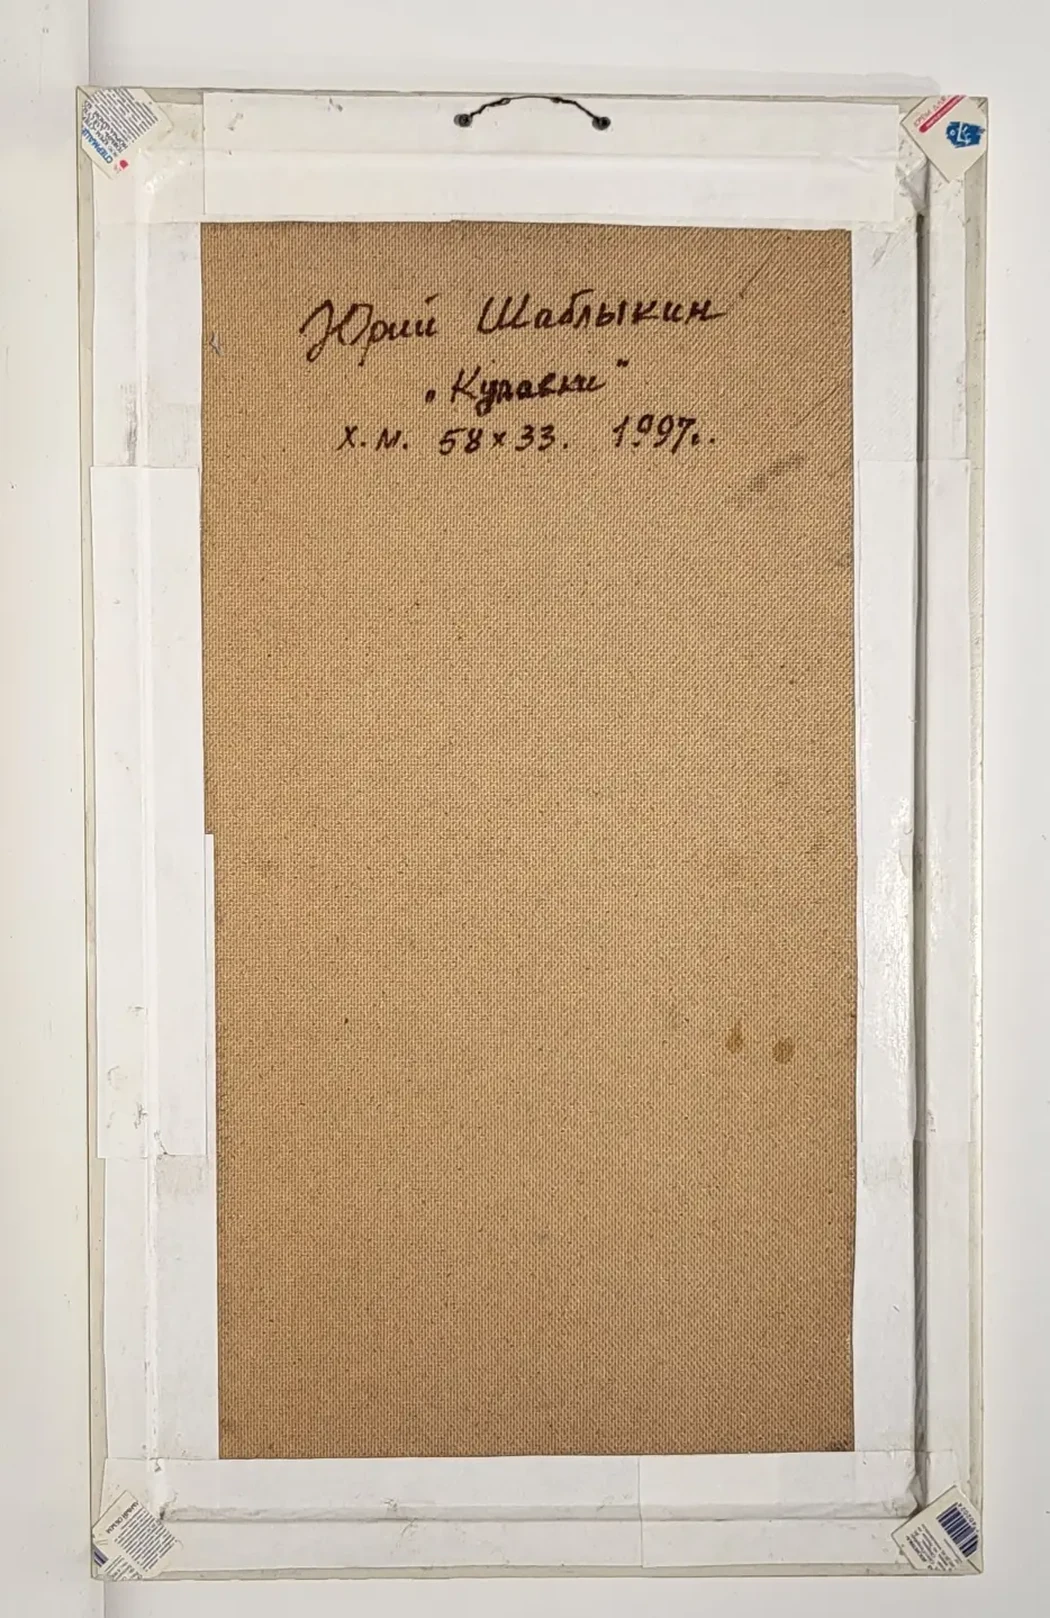 Юрий Шаблыкин
„Купавки"
Х.М. 58×33. 1997г.